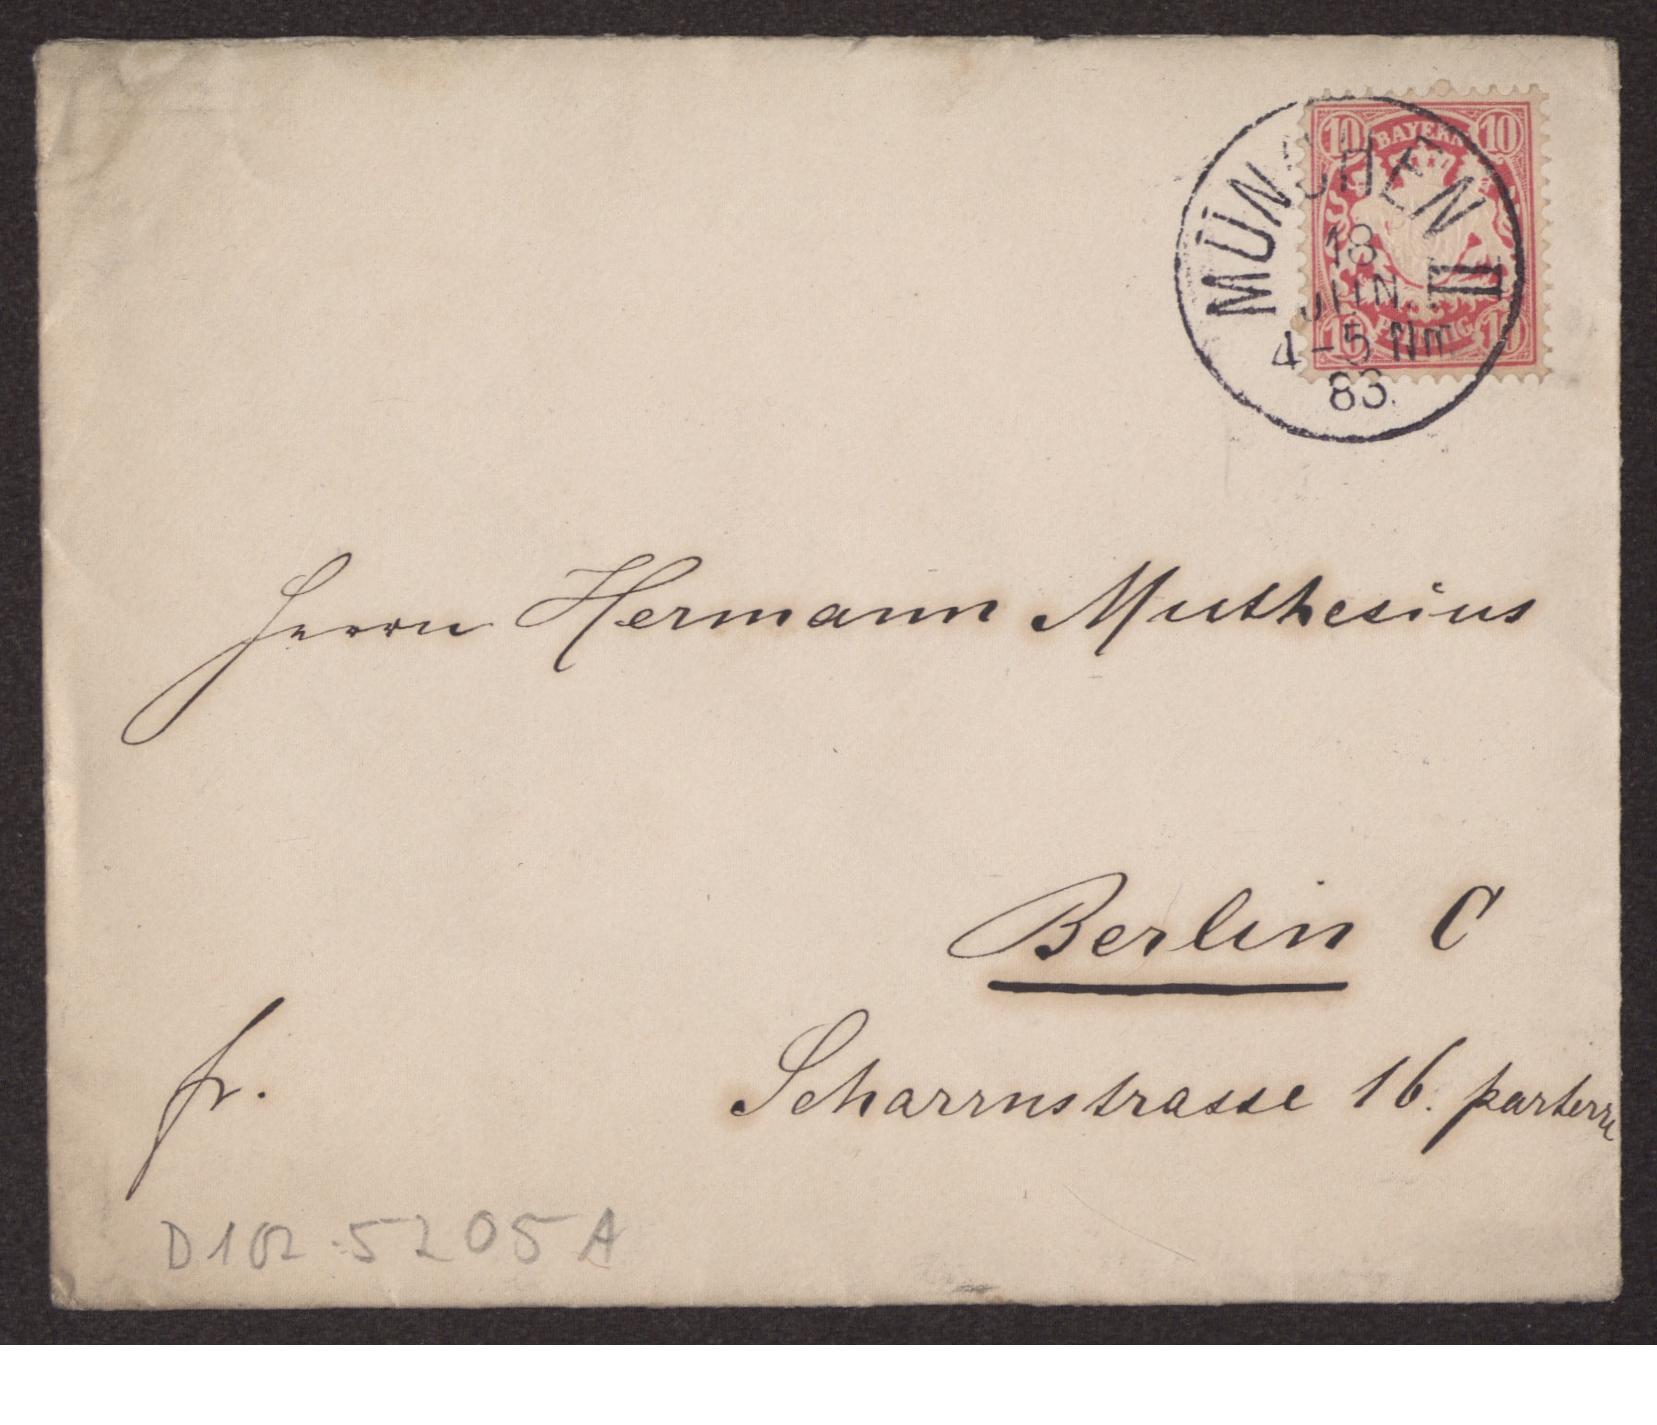 10 BAYERN 10
MÜNCHEN II
18
JUN.
4-5 Nm
83.
10 PFENNIG 10
Herrn Hermann Muthesius
Berlin C
fr.
Scharrnstrasse 16. parterre
D102-5205A